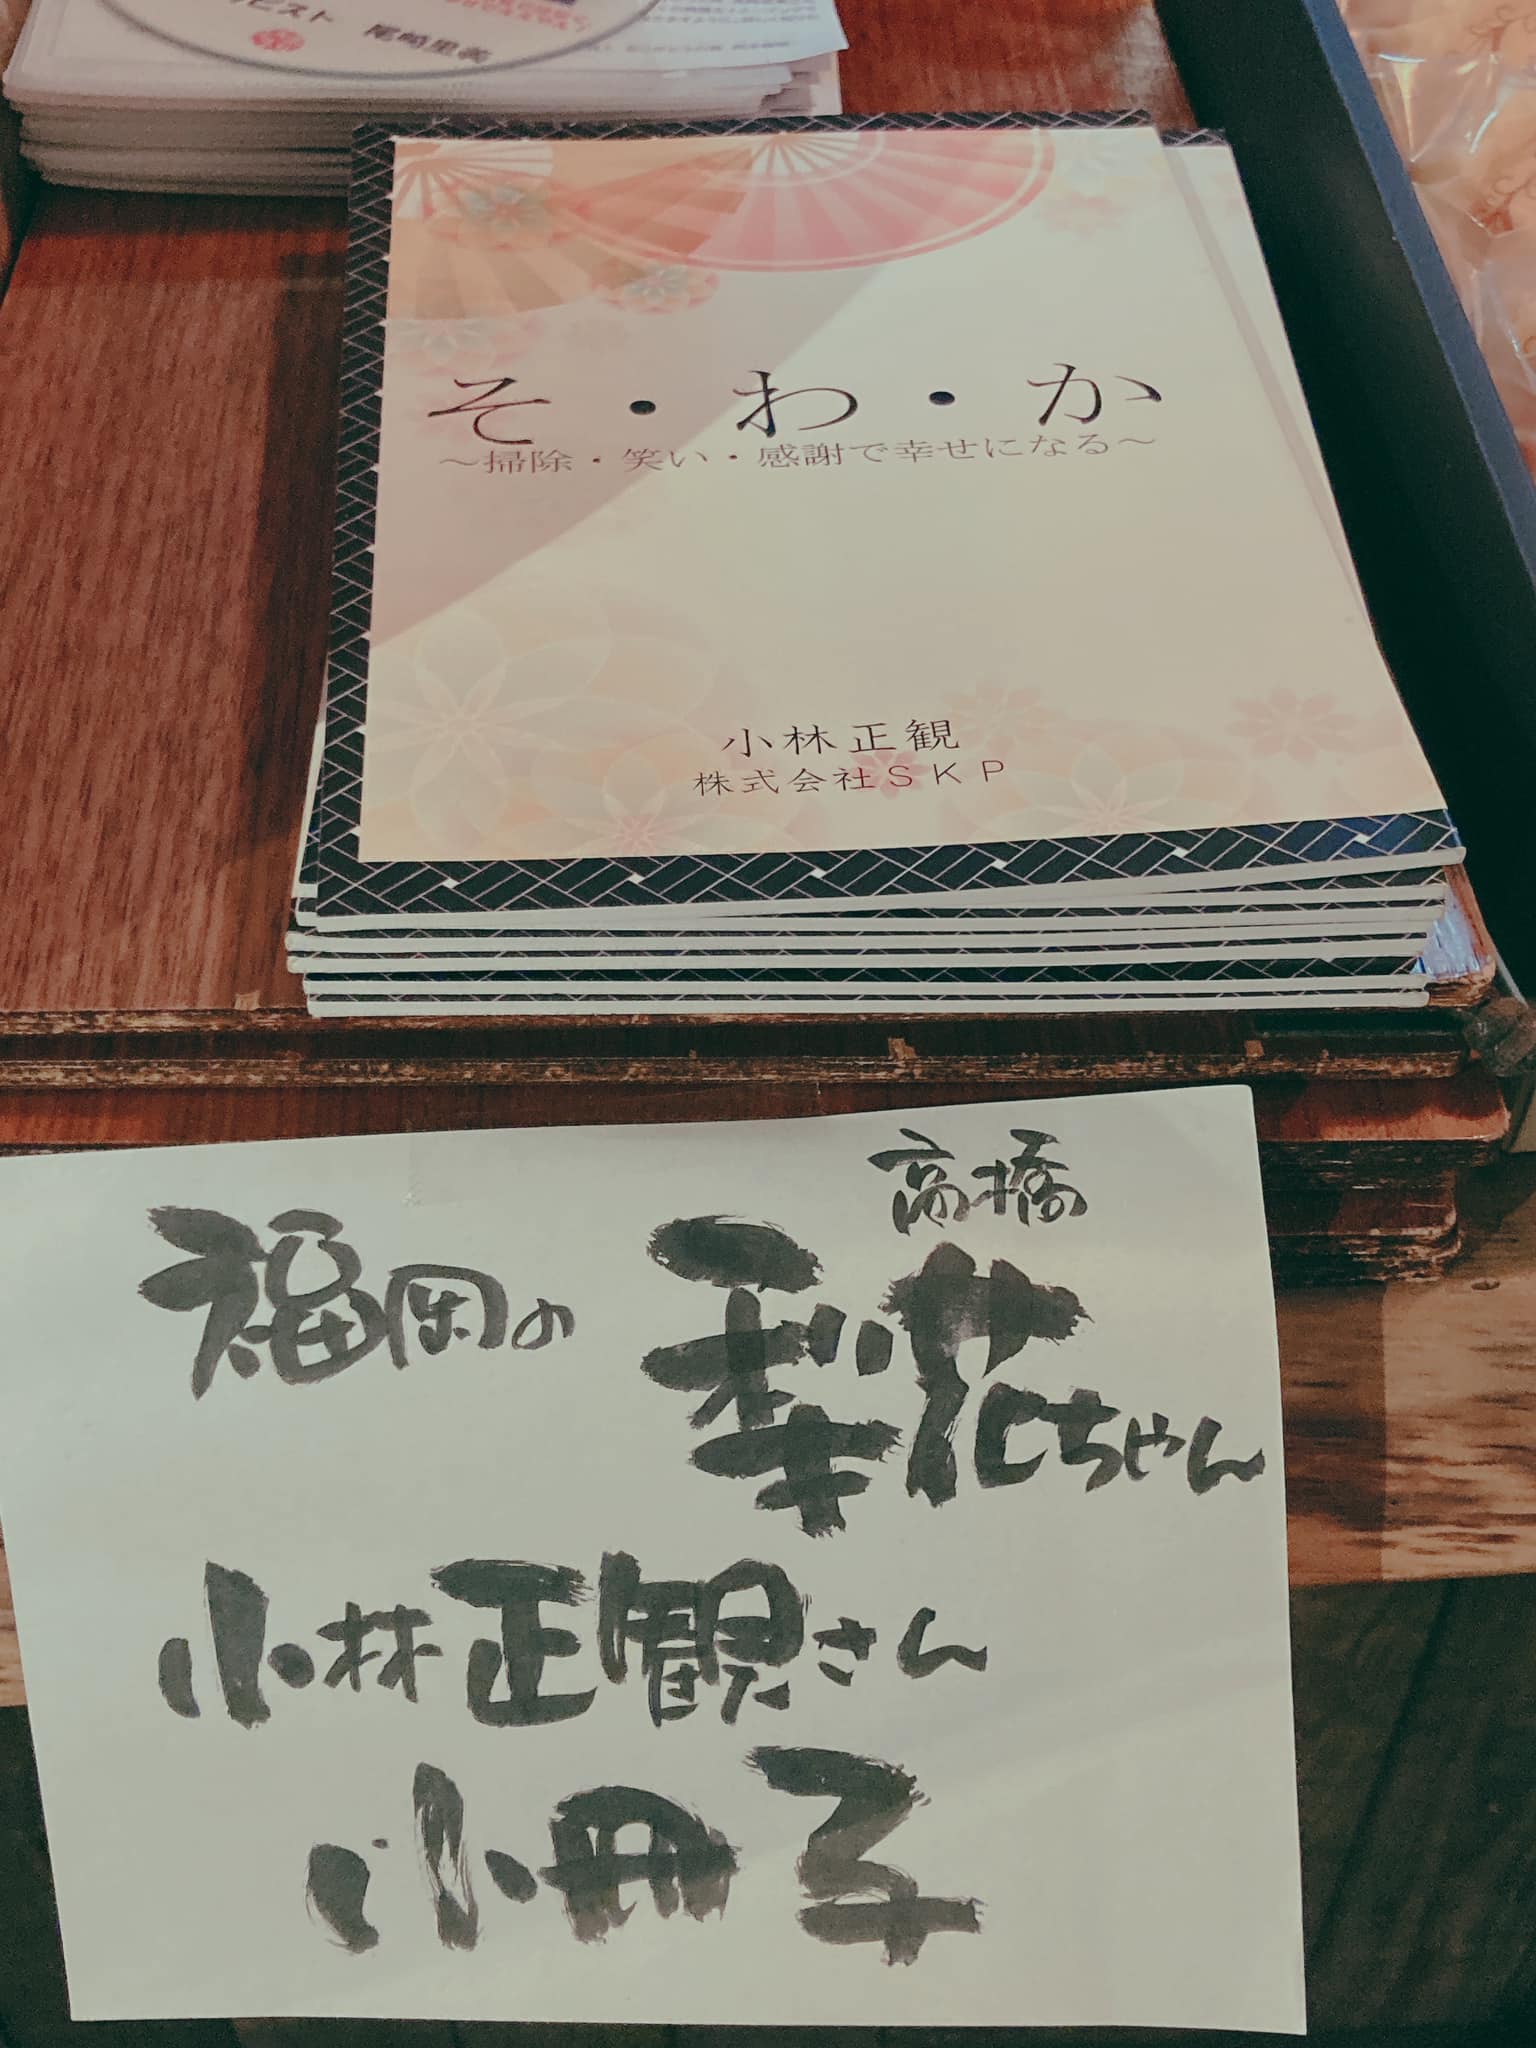 尾崎里美
そ・わ・か
～掃除・笑い・感謝で幸せになる～
小林正観
株式会社ＳＫＰ
高橋
福岡の 梨花ちゃん
小林正観さん
小冊子